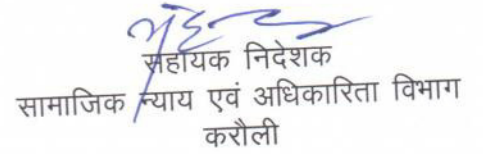 सहायक निदेशक
सामाजिक न्याय एवं अधिकारिता विभाग
करौली